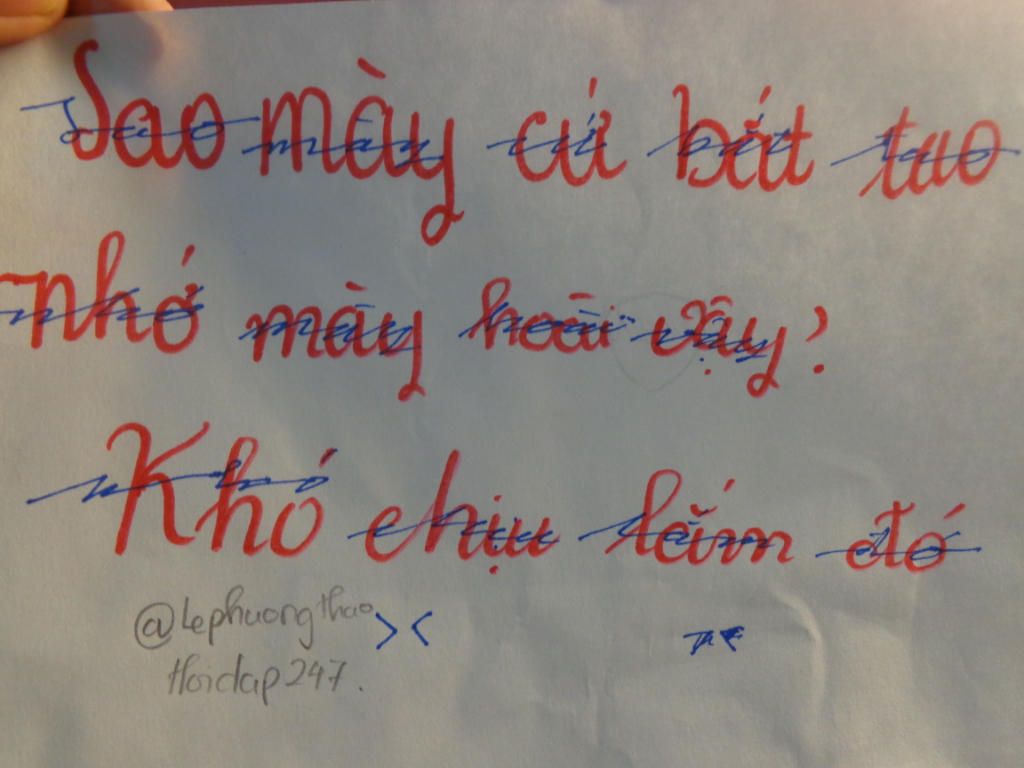 Sao mày cứ bắt tao
nhớ mày hoài vậy?
Khó chịu lắm đó
@lephuongthao
Hoidap247.
><